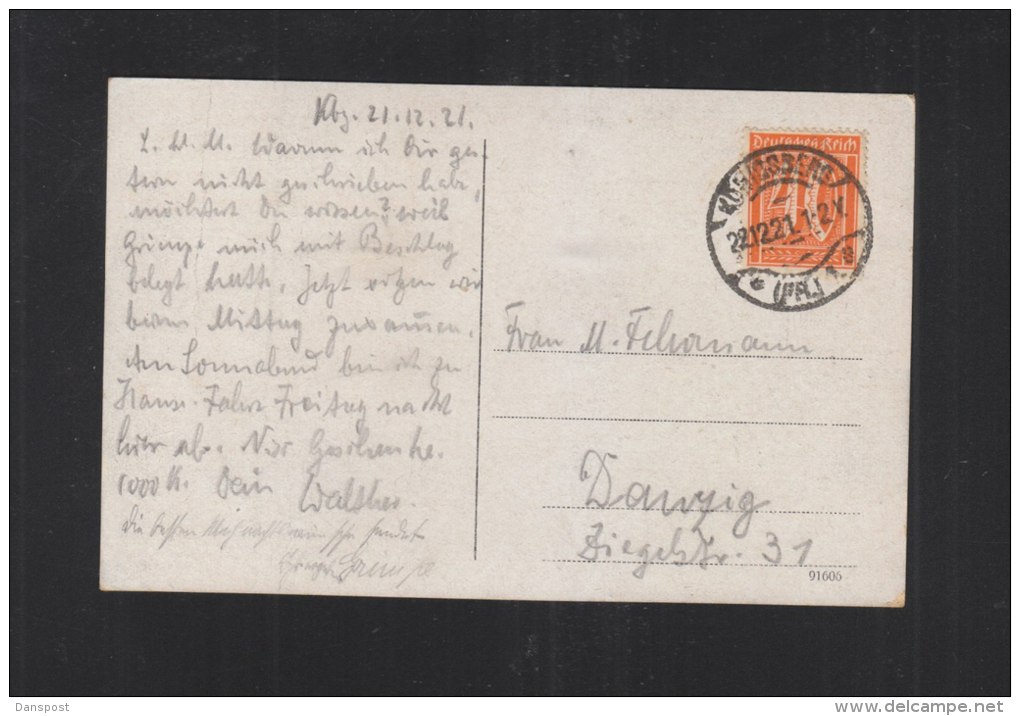 Kbg. 21.12.21.
L. M. M. Warum ich Dir ges-
tern nicht geschrieben habe,
möchtest Du wissen? weil
Grimpe mich mit Beschlag
belegt hatte. Jetzt sitzen wir
beim Mittag zusammen.
Am Sonnabend bin ich zu
Hause. Fahre Freitag nacht
hier ab. Nur Geschenke.
1000 K. Dein Walther.
Die besten Weihnachtswünsche sendet
Grimpe
Deutsches Reich
40
KÖNIGSBERG
22.12.21. 1-2 V.
* (PR.) 1
Frau M.
Danzig
Ziegelstr. 31
91606
Danspost
delcampe.net